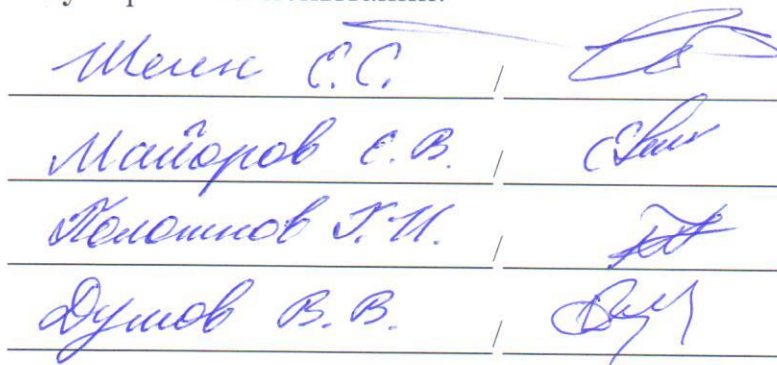 Шеин С.С. /
Майоров Е.В. /
Полошнов Г.И. /
Душов В.В. /